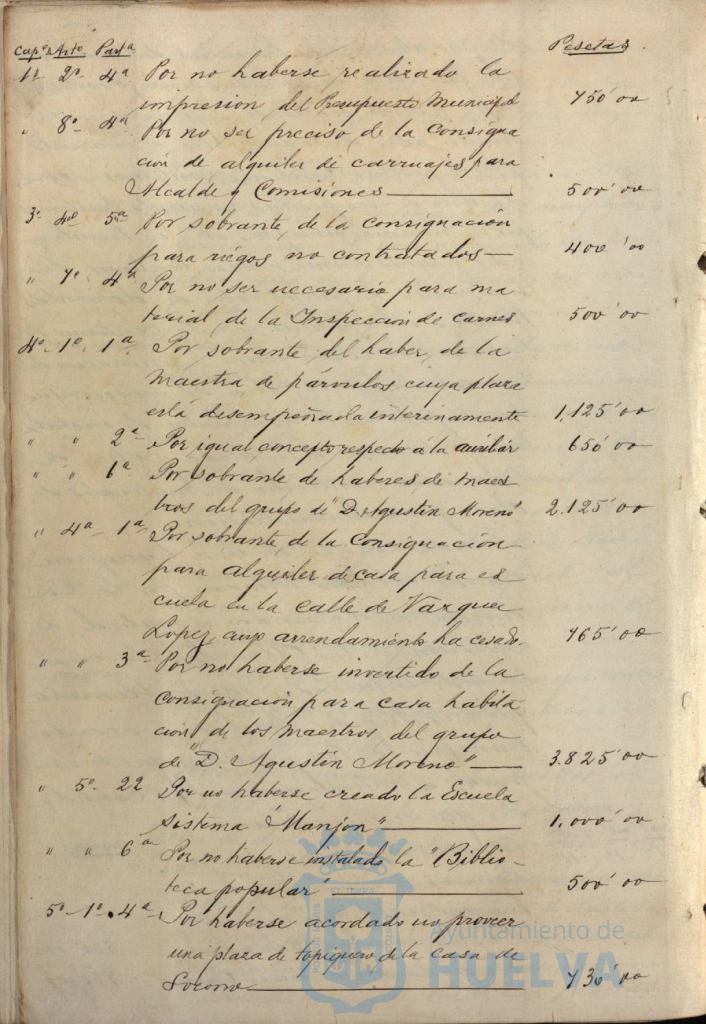 Capº Arto. Parta Pesetas.
1º 2º 4ª Por no haberse realizado la
impresion del Presupuesto Municipal 750'00
" 8º 4ª Por no ser preciso de la consigna
cion de alquiler de carruajes para
Alcalde y Comisiones 500'00
3º 4º 5ª Por sobrante, de la consignación
para riegos no contratados 400'00
" 7º 4ª Por no ser necesario para ma
terial de la Inspeccion de carnes 500'00
4º 1º 1ª Por sobrante del haber, de la
maestra de párvulos cuya plaza
está desempeñada interinamente 1,125'00
" " 2ª Por igual concepto respecto á la auxiliar 650'00
" " 6ª Por sobrante de haberes de maes
tros del grupo de "D. Agustin Moreno" 2.125'00
" 4ª 1ª Por sobrante, de la consignación
para alquiler de casa para es
cuela en la calle de Vazquez
Lopez, cuyo arrendamiento ha cesado. 765'00
" " 3ª Por no haberse invertido de la
consignación para casa habita
cion, de los maestros del grupo
de "D. Agustin Moreno" 3.825'00
" 5º 22 Por no haberse creado la Escuela
sistema "Manjon" 1.000'00
" " 6ª Por no haberse instalado la "Biblio-
teca popular" 500'00
5º 1º 4ª Por haberse acordado no proveer
una plaza de topiquero de la casa de
Socorro 730'00
Ayuntamiento de
HUELVA